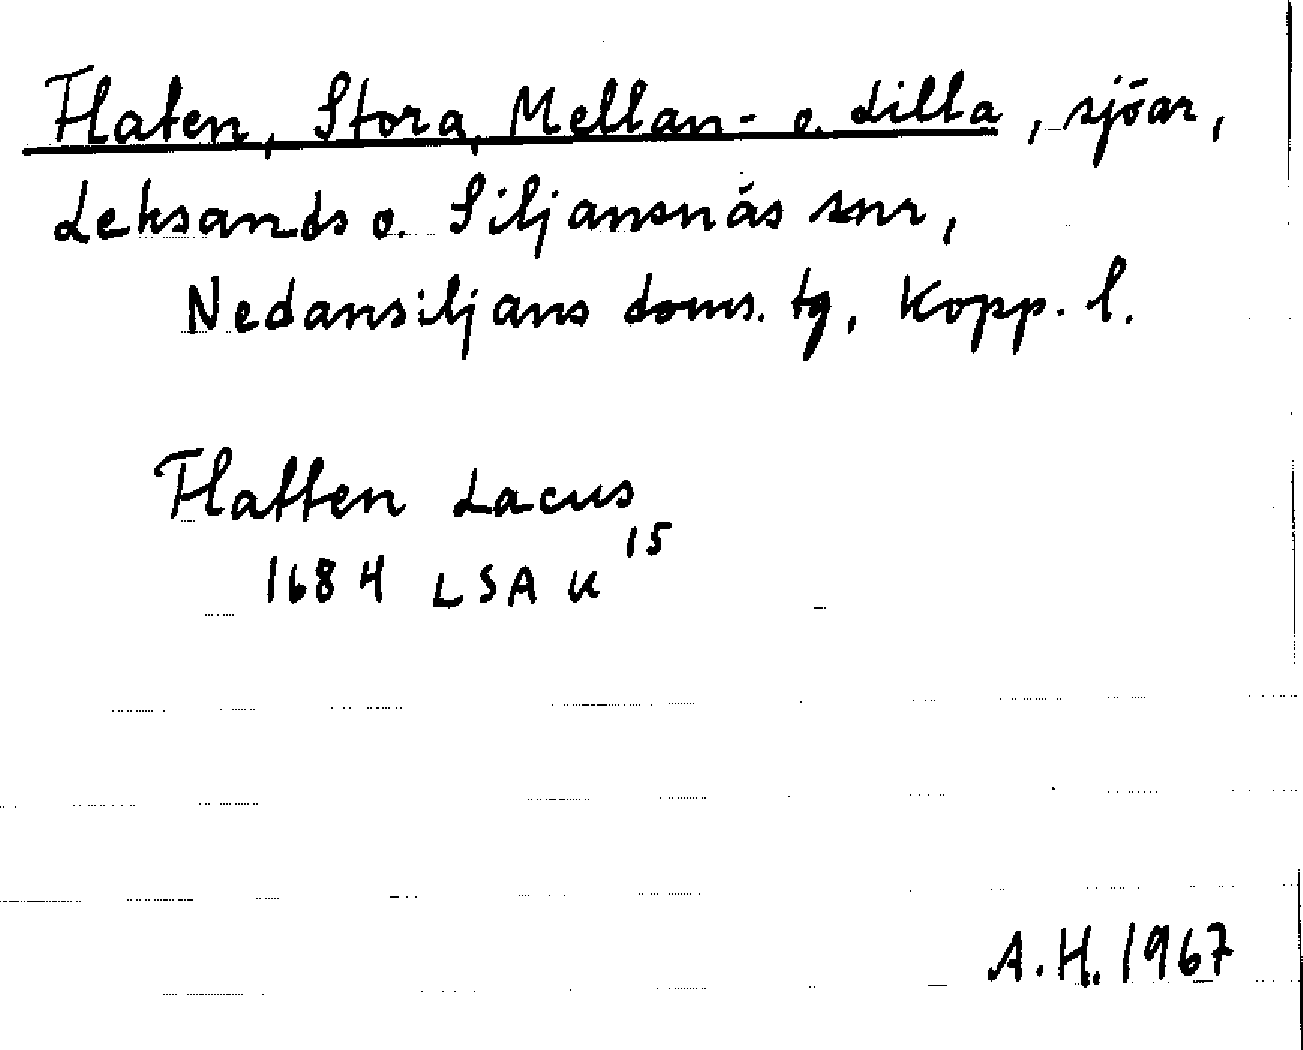 Flaten, Stora, Mellan- o. Lilla, sjöar,
Leksands o. Siljansnäs snr,
Nedansiljans doms. tg, Kopp. l.
Flatten Lacus
1684 LSA U 15
A.H. 1967